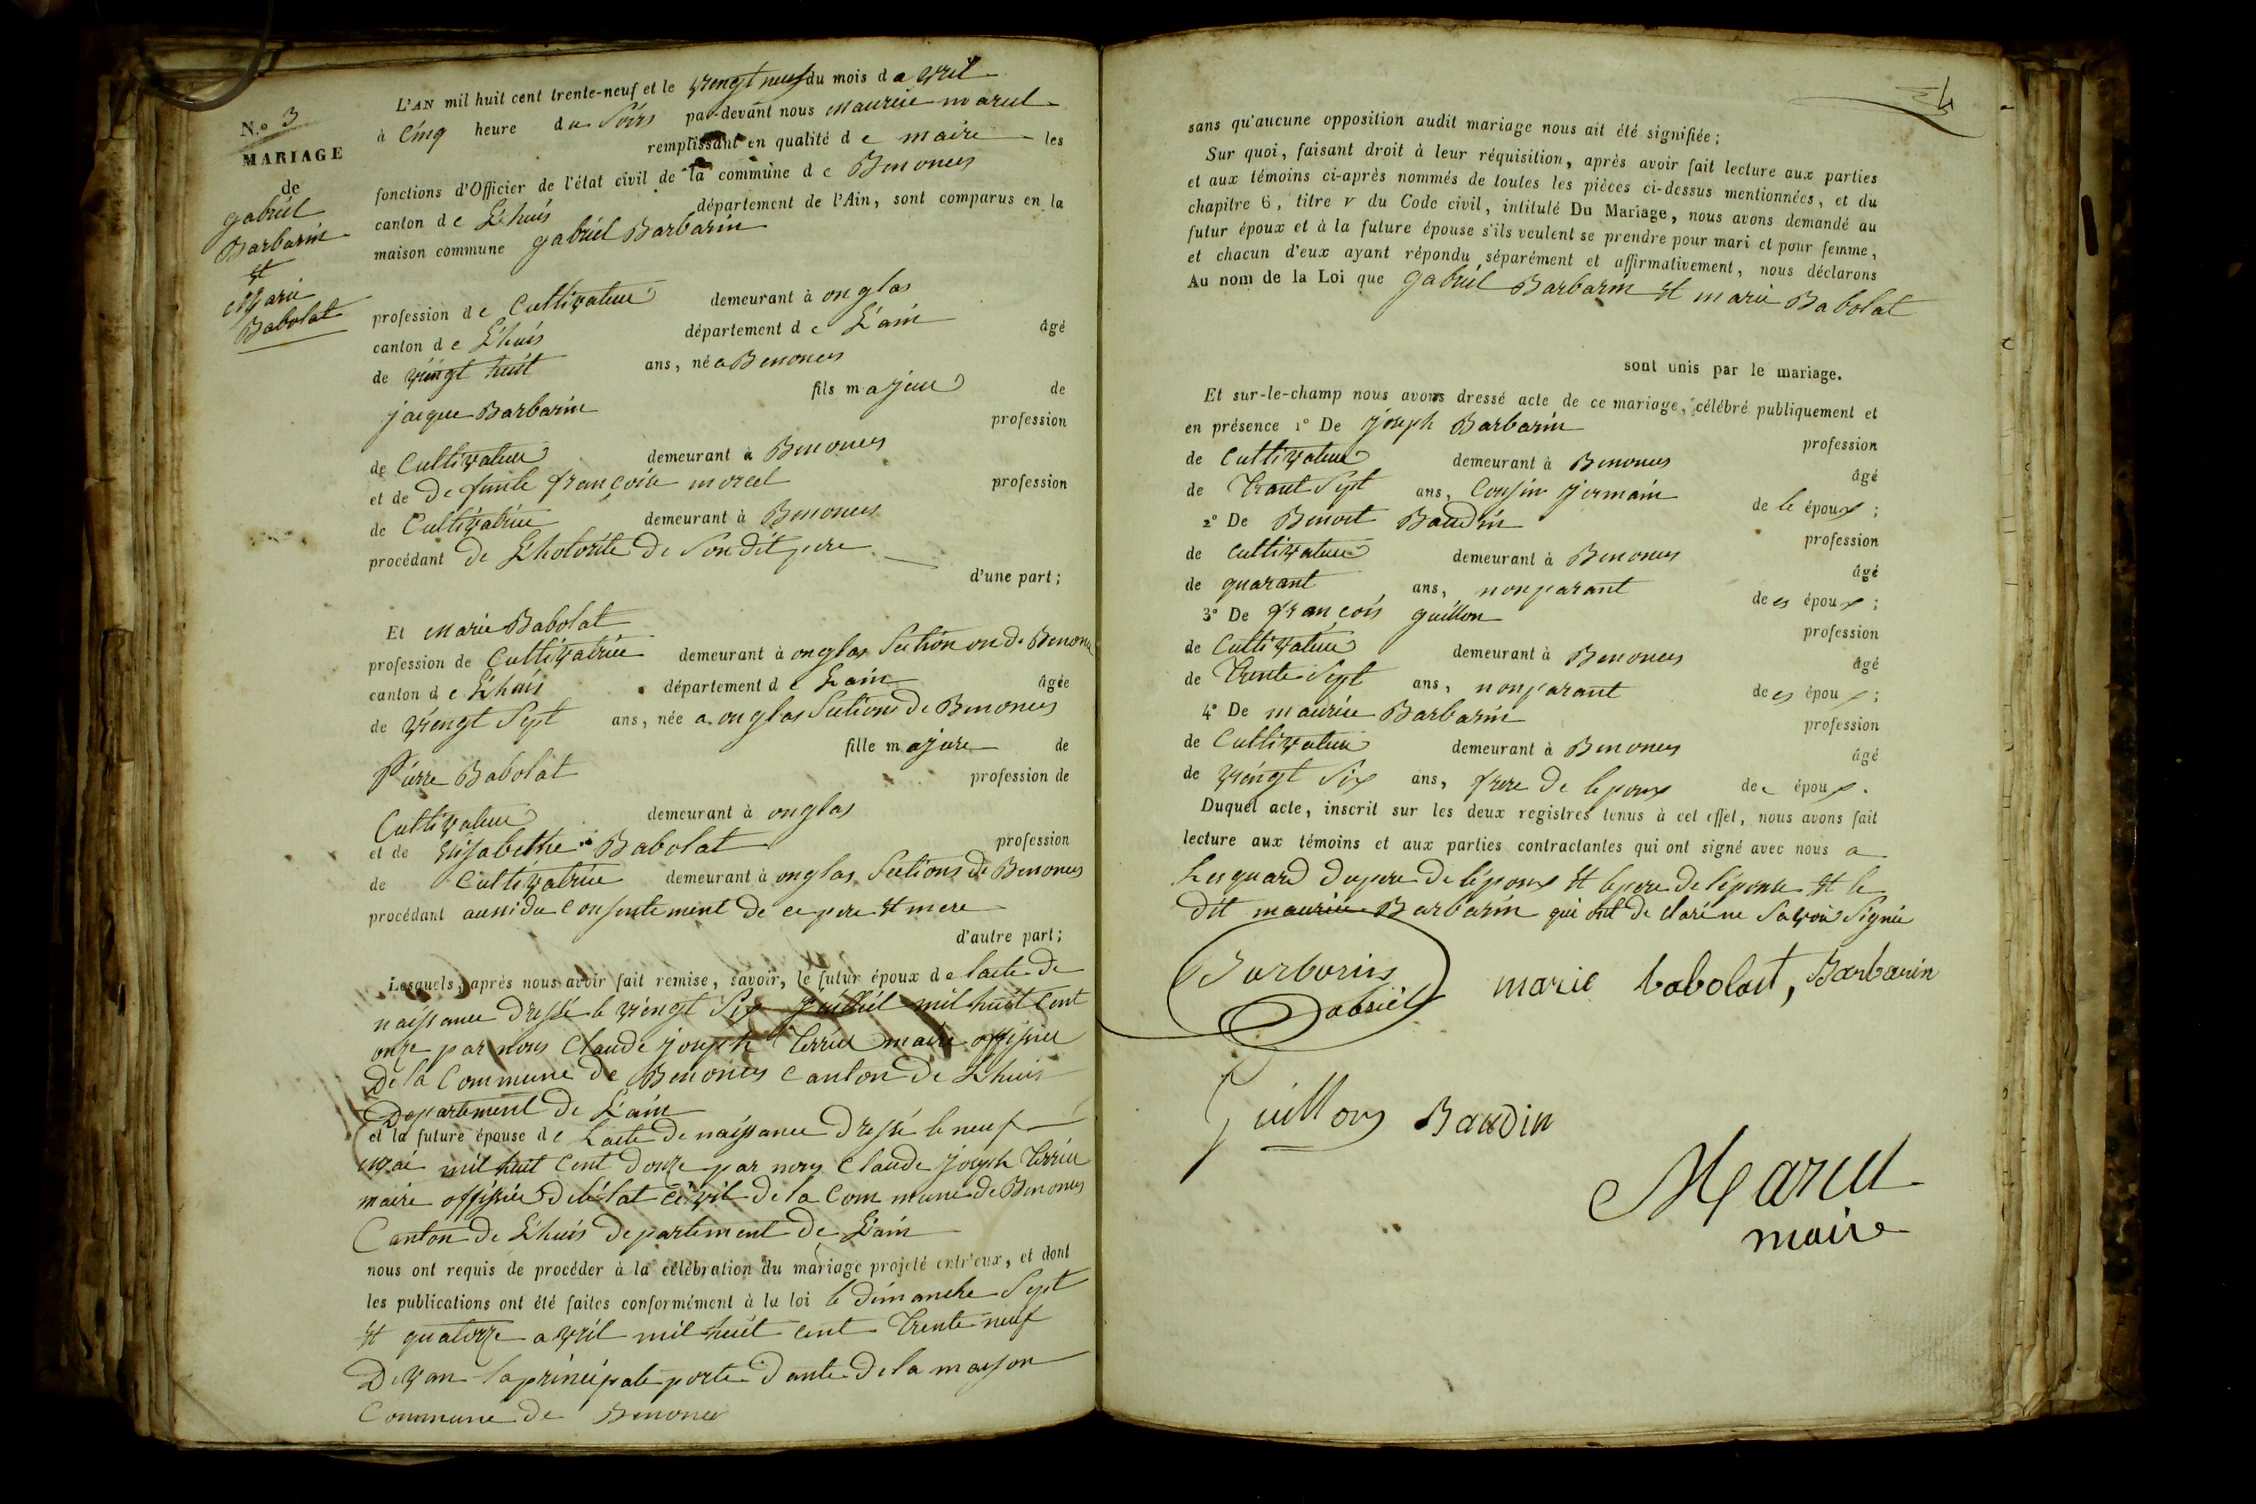 N.o 3
MARIAGE
de
gabriel
Barbarin
et
Marie
Babolat
L'AN mil huit cent trente-neuf et le vengt neuf du mois d avril
à Cinq heure du Soirs par-devant nous Maurice marcel
remplissant en qualité de maire les
fonctions d'Officier de l'état civil de la commune de Benonces
canton de L'huis département de l'Ain, sont comparus en la
maison commune gabriel Barbarin
profession de Cultivateur demeurant à onglas
canton de L'huis département de L'ain âgé
de vingt huit ans, né a Benonces
fils majeur de
jacque Barbarin profession
de Cultivateur demeurant à Benonces
et de defunte françoise morcel profession
de Cultivatrice demeurant à Benonces
procédant de L'hotorite de Son dit pere
d'une part;
Et Marie Babolat
profession de Cultivatrice demeurant à onglas Section on de Benonces
canton de L'huis département de L'ain âgée
de vengt Sept ans, née a onglas Sections de Benonces
fille majure de
Pierre Babolat profession de
Cultivateur demeurant à onglas
et de Elisabethe Babolat profession
de Cultivatrice demeurant à onglas Sections de Benonces
procédant aussi du consentement de ce pere et mere
d'autre part;
Lesquels, après nous avoir fait remise, savoir, le futur époux de lacte de
naissance dressé le vengt Six Juilliet mil huit Cent
onze par nous Claude joseph Terrier maire offisier
De la Commune de Benonces canton de L'huis
Departement de L'ain
et la future épouse de Lacte de naissance dressé le neuf
mai mil huit Cent douze par nous Claude joseph Terrier
maire offisier de l'état civil de la Commune de Benonces
Canton de L'huis departement de L'ain
nous ont requis de procéder à la célébration du mariage projeté entr'eux, et dont
les publications ont été faites conformément à la loi le dimanche Sept
et quatorze avril mil huit cent Trente neuf
Devan la principale porte dante de la mayson
Commune de Benonces
4
sans qu'aucune opposition audit mariage nous ait été signifiée;
Sur quoi, faisant droit à leur réquisition, après avoir fait lecture aux parties
et aux témoins ci-après nommés de toutes les pièces ci-dessus mentionnées, et du
chapitre 6, titre v du Code civil, intitulé Du Mariage, nous avons demandé au
futur époux et à la future épouse s'ils veulent se prendre pour mari et pour femme,
et chacun d'eux ayant répondu séparément et affirmativement, nous déclarons
Au nom de la Loi que gabriel Barbarin et marie Babolat
sont unis par le mariage.
Et sur-le-champ nous avons dressé acte de ce mariage, célébré publiquement et
en présence 1° De joseph Barbarin profession
de Cultivateur demeurant à Benonces âgé
de Trant Sept ans, Cousin jermain de le époux;
2° De Benoit Baudin profession
de cultivateur demeurant à Benonces âgé
de quarant ans, non parant de es époux;
3° De françois guillon profession
de Cultivateur demeurant à Benonces âgé
de Trente Sept ans, non parant de es époux;
4° De maurice Barbarin profession
de Cultivateur demeurant à Benonces âgé
de vengt Six ans, frere de lepoux de e époux.
Duquel acte, inscrit sur les deux registres tenus à cet effet, nous avons fait
lecture aux témoins et aux parties contractantes qui ont signé avec nous a
Lesguard du pere de lépoux et lepere de lépouse et le
dit maurice Barbarin qui ont declaré ne Savoir Signier
Barbarin
Gabriel
marie babolat, Barbarin
Guillon Baudin
Marcel
maire